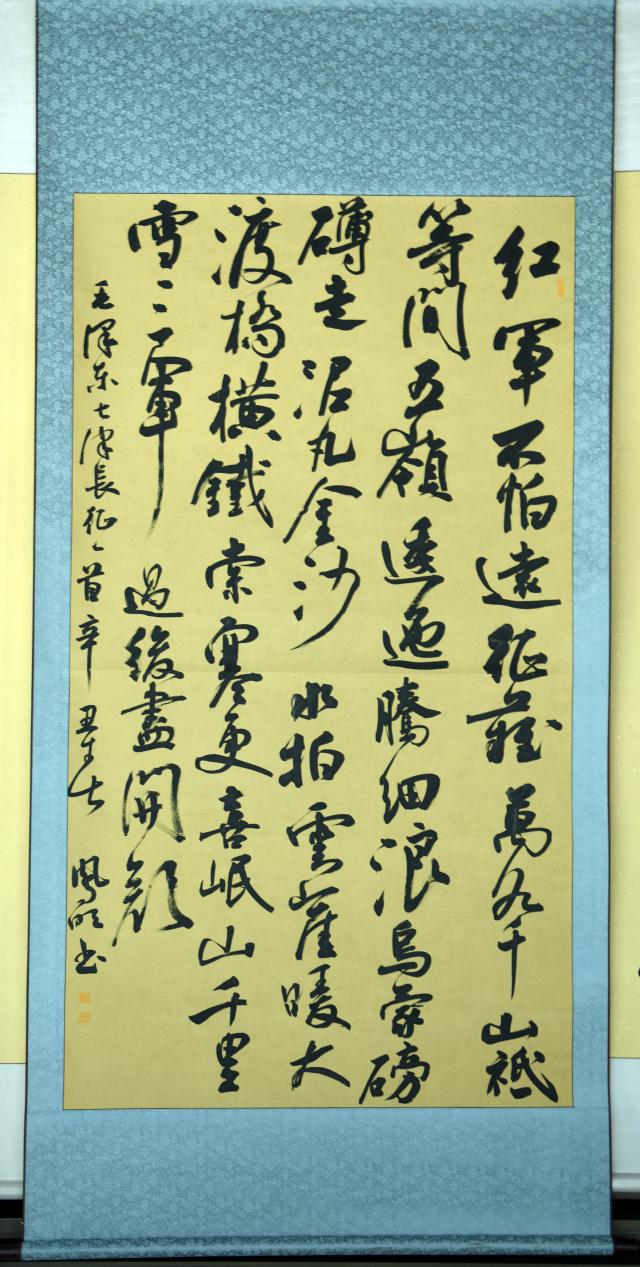 紅軍不怕遠征難萬水千山祗
等間五嶺逶迤騰細浪烏蒙磅
礴走泥丸金沙水拍雲崖暖大
渡橋橫鐵索寒更喜岷山千里
雪三軍過後盡開顏
毛澤东七律長征一首辛丑年 鳳明书